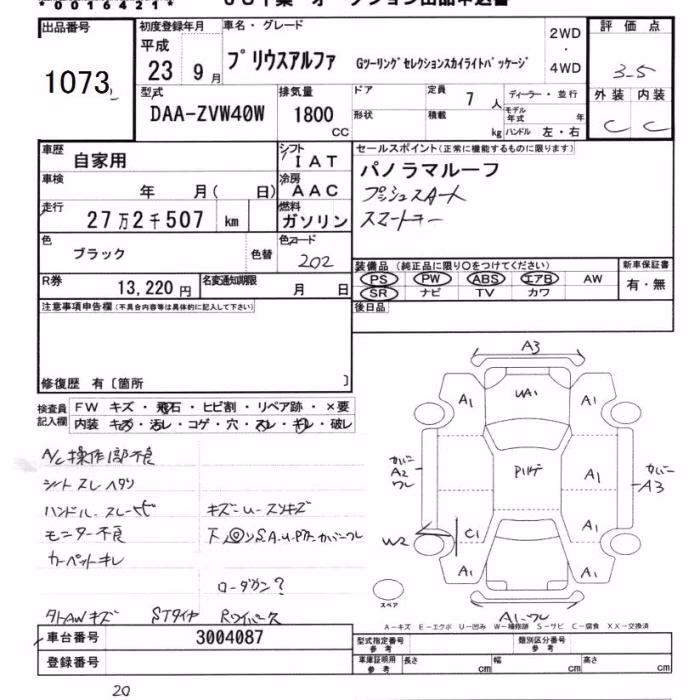 *00164214*
出品番号
1073
初度登録年月
平成
23 年 9 月
車名・グレード
プリウスアルファ Gツーリングセレクションスカイライトパッケージ
2WD
・
4WD
評価点
3-5
外装 内装
C C
型式
DAA-ZVW40W
排気量
1800
cc
ドア
形状
定員 7 人
積載 kg
ディーラー・並行
モデル年式 年
ハンドル 左・右
車歴
自家用
シフト
IAT
車検
年 月( 日)
冷房
AAC
走行
27万2千507 km
燃料
ガソリン
色
ブラック
色替
色コード
202
R券
13,220円
名変通知期限
月 日
セールスポイント(正常に機能するものに限ります)
パノラマルーフ
プッシュスタート
スマートキー
装備品(純正品に限り○をつけてください)
PS PW ABS エアB AW
SR ナビ TV カワ
新車保証書
有・無
後日品
注意事項申告欄(不具合内容等は具体的に記入して下さい)
修復歴 有〔箇所 〕
検査員記入欄
FW キズ・飛石・ヒビ割・リペア跡・×要
内装 キズ・汚レ・コゲ・穴・スレ・キレ・破レ
A/C操作部不良
シートスレヘタリ
ハンドルスレ
モニター不良
カーペットキレ
キズ
A3
A1
UA1
A1
カバー
A2
ワレ
A1
カバー
A3
W2
C1
A1
A1
A1
A1ワレ
スペア
A-キズ E-エクボ U-凹み W-補修跡 S-サビ C-腐食 XX-交換済
車台番号
3004087
登録番号
型式指定番号
参考
類別区分番号
参考
車庫証明用
参考
長さ cm
幅 cm
高さ cm
20